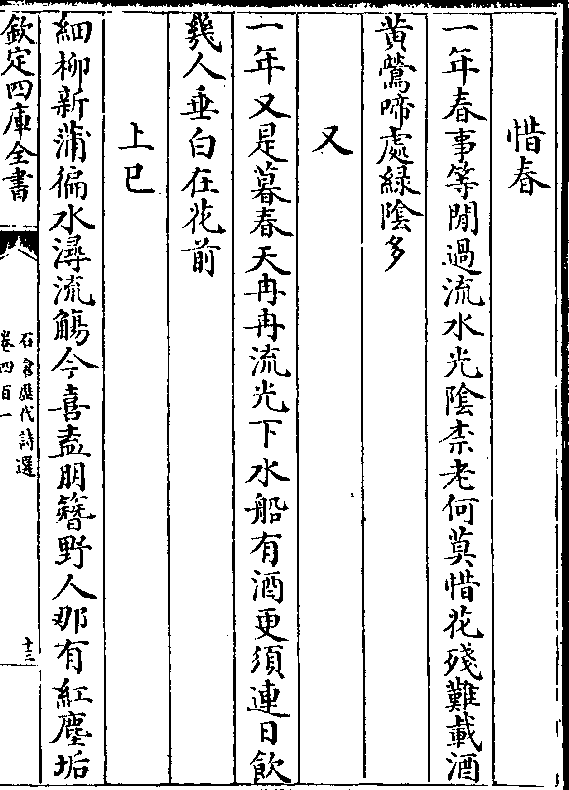 惜春
一年春事等閒過流水光陰柰老何莫惜花殘難載酒
黄鶯啼處緑陰多
又
一年又是暮春天冉冉流光下水船有酒更須連日飲
幾人垂白在花前
上巳
細柳新蒲徧水潯流觴今喜盍朋簪野人那有紅塵垢
欽定四庫全書
石倉歴代詩選
卷四百一
十三